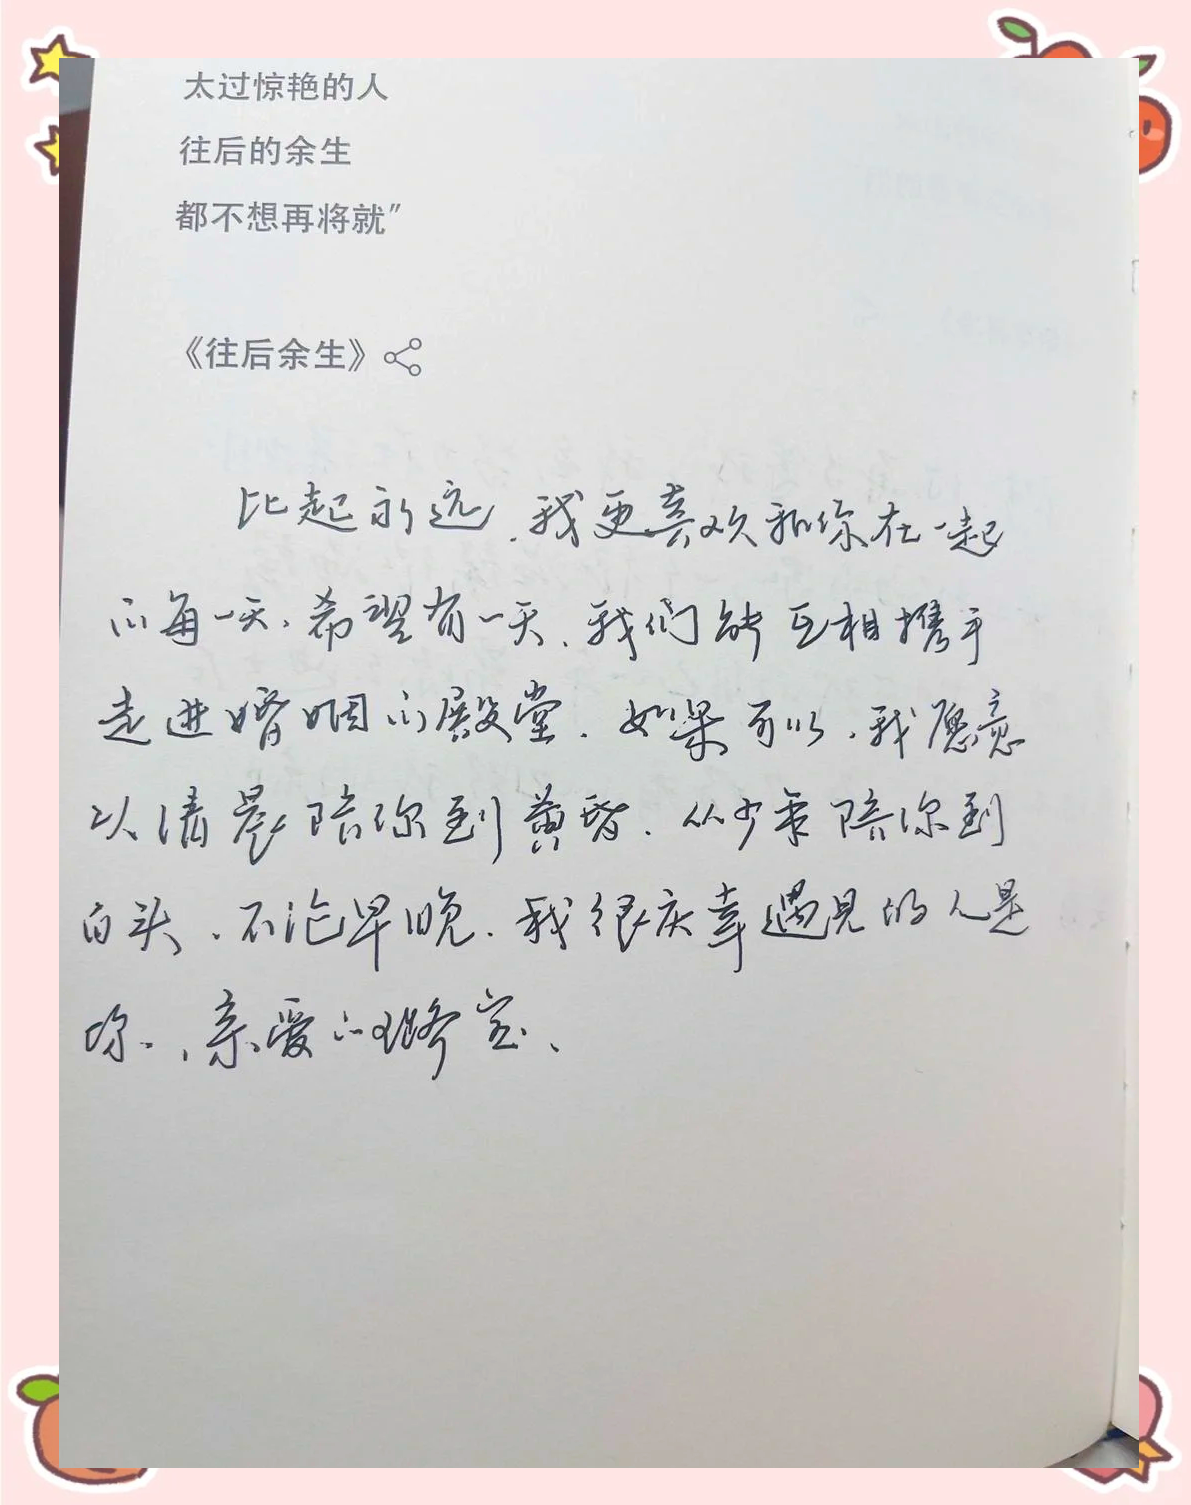 太过惊艳的人
往后的余生
都不想再将就”
《往后余生》
比起永远,我更喜欢和你在一起
的每一天,希望有一天,我们能互相携手
走进婚姻的殿堂.如果可以,我愿意
从清晨陪你到黄昏.从少年陪你到
白头,不论早晚.我很庆幸遇见的人是
你.,亲爱的璐宝、